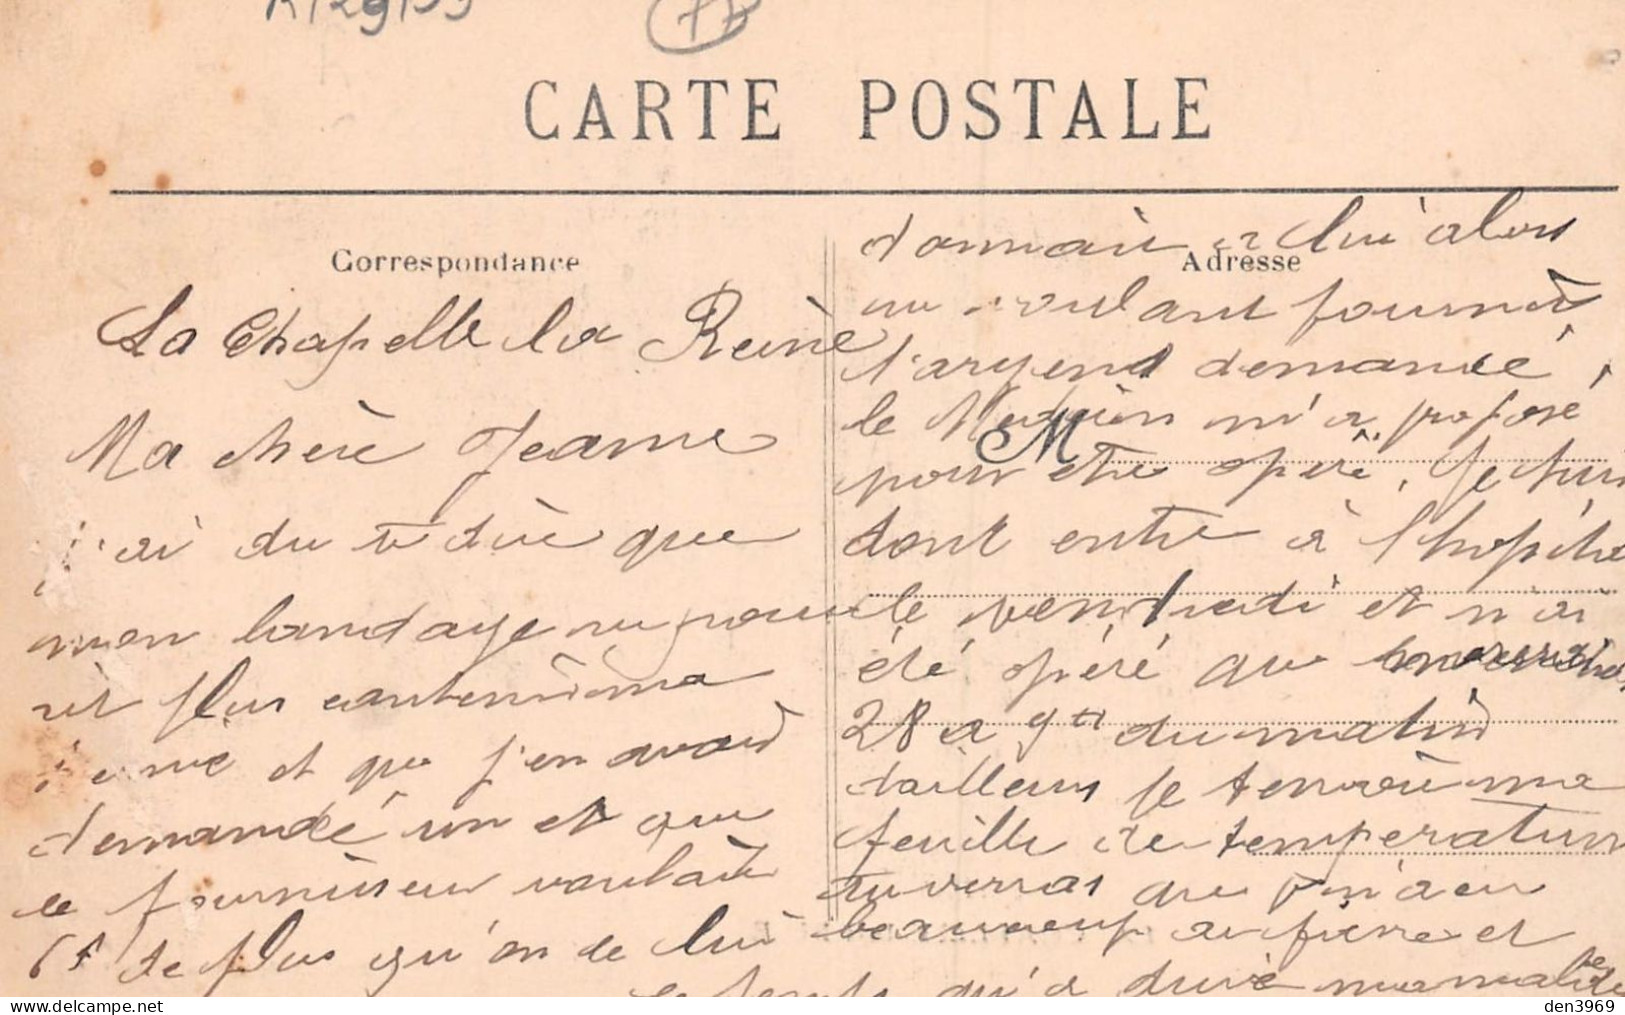 CARTE POSTALE
Correspondance
La Chapelle la Reine
Ma chère Jeanne
j'ai du te dire que
mon bandage ne pouv
ait plus contenir ma
et que j'en avais
demandé un et que
le fournisseur voulait
6f de plus qu'on ne lui
Adresse
donnait et lui alors
ne voulant fournir
l'argent demandé,
le Médecin m'a proposé
M
pour être opéré. Je suis
dont entré à l'hopital
le vendredi et n'ai
été opéré que
28 a 9h du matin
dailleurs je tenvoie ma
feuille de temperature
tu verras que j'en ai eu
beaucoup de fièvre et
le temps qu'a duré ma maladie
delcampe.net
den3969